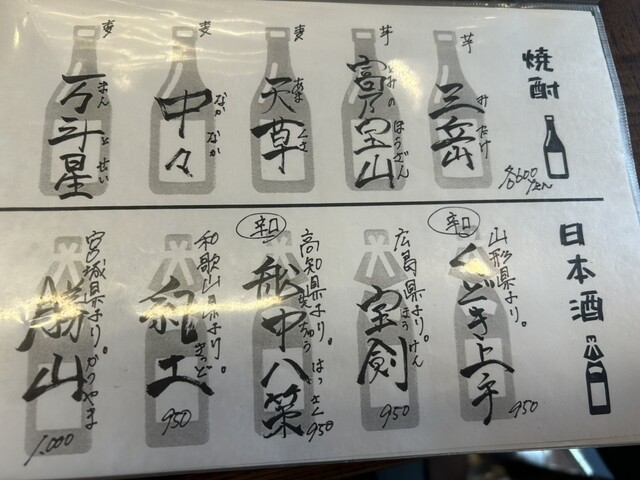 焼酎
各600えん
芋
三岳
みたけ
芋
富乃宝山
とみのほうざん
麦
天草
あまくさ
麦
中々
なかなか
麦
万斗星
まんとせい
日本酒
山形県より。
辛口
くどき上手
950
広島県より。
宝剣
ほうけん
950
高知県より。
辛口
船中八策
せんちゅうはっさく
950
和歌山県より。
紀土
きっど
950
宮城県より。
勝山
かつやま
1,000